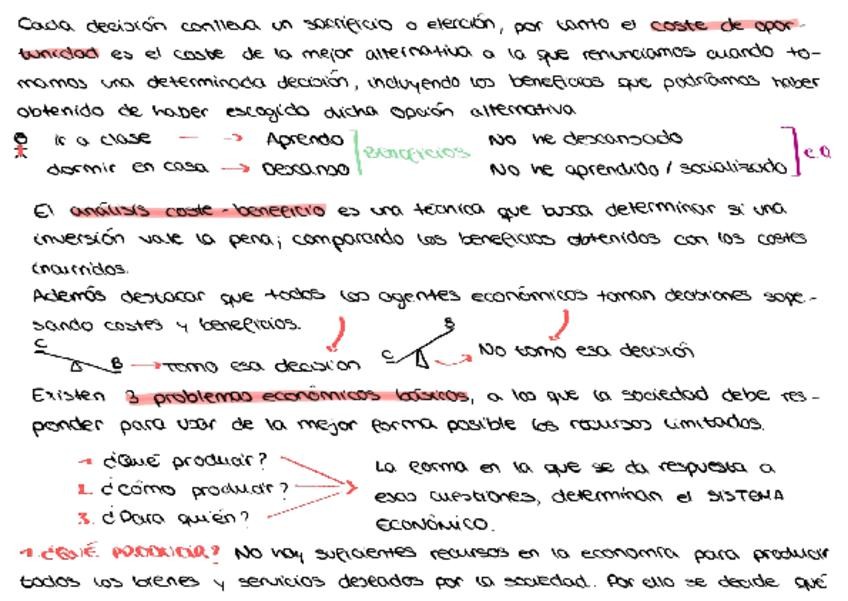 Cada decisión conlleva un sacrificio o elección, por tanto el coste de opor-
tunidad es el coste de la mejor alternativa a la que renunciamos cuando to-
mamos una determinada decisión, incluyendo los beneficios que podríamos haber
obtenido de haber escogido dicha opción alternativa
Ir a clase → Aprendo No he descansado
BENEFICIOS C.O
dormir en casa → Descanso No he aprendido / socializado
El análisis coste-beneficio es una técnica que busca determinar si una
inversión vale la pena; comparando los beneficios obtenidos con los costes
incurridos.
Además destacar que todos los agentes económicos toman decisiones sope-
sando costes y beneficios.
C B → Tomo esa decisión C B → No tomo esa decisión
Existen 3 problemas económicos básicos, a los que la sociedad debe res-
ponder para usar de la mejor forma posible los recursos limitados.
1. ¿Qué producir?
2. ¿Cómo producir?
3. ¿Para quién?
La forma en la que se da respuesta a
esas cuestiones, determinan el SISTEMA
ECONÓMICO.
1. ¿QUÉ PRODUCIR? No hay suficientes recursos en la economía para producir
todos los bienes y servicios deseados por la sociedad. Por ello se decide qué